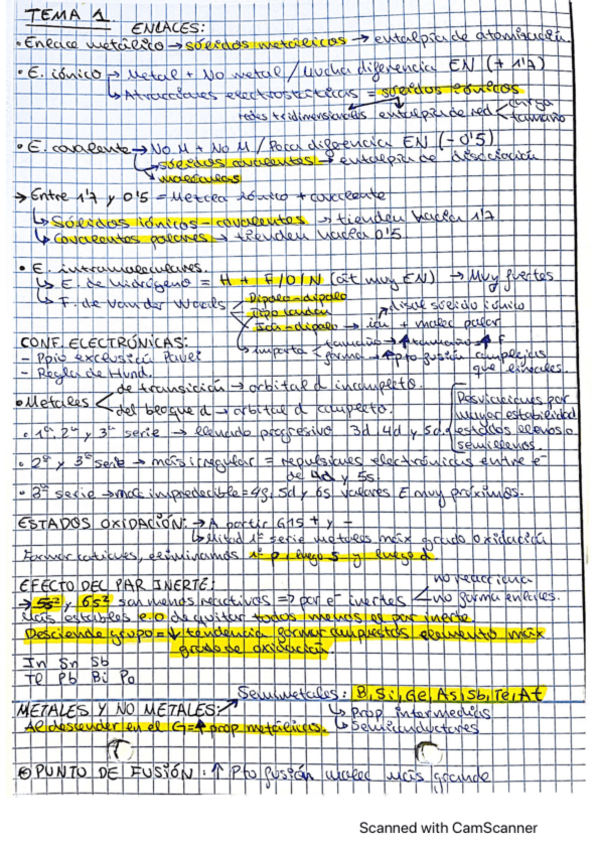 TEMA 1.
ENLACES:
• Enlace metálico → sólidos metálicos → entalpía de atomización.
• E. iónico → Metal + No metal / Mucha diferencia EN (+ 1'7)
↳ Atracciones electrostáticas = sólidos iónicos
redes tridimensionales entalpía de red < carga
tamaño
• E. covalente → No M + No M / Poca diferencia EN (- 0'5)
↳ sólidos covalentes → entalpía de disociación
↳ moléculas
→ Entre 1'7 y 0'5 = Mezcla iónico + covalente
↳ Sólidos iónicos - covalentes → tienden hacia 1'7
↳ Covalentes polares → tienden hacia 0'5
• E. intramoleculares.
↳ E. de hidrógeno = H + F/O/N (át muy EN) → Muy fuertes
↳ F. de Van der Waals Dipolo-dipolo
Tipo London
Ion-dipolo → ion + molec polar
↗ disol sólido iónico
importa tamaño → ↑ tamaño ↑ F
forma → ↑ pto fusión complejas
que lineales.
CONF. ELECTRÓNICAS:
- Ppio exclusión Pauli
- Regla de Hund.
• Metales < de transición → orbital d incompleto.
del bloque d → orbital d completo.
• 1ª, 2ª y 3ª serie → llenado progresivo 3d, 4d y 5d.
Desviaciones por
mayor estabilidad
estados llenos o
semillenos.
• 2ª y 3ª serie → más irregular = repulsiones electrónicas entre e⁻
de 4d y 5s.
• 3ª serie → más impredecible = 4f, 5d y 6s valores E muy próximos.
ESTADOS OXIDACIÓN: → A partir G15 + y -
↳ Mitad 1ª serie metales máx grado oxidación
Formar cationes, eliminamos 1º p, luego s y luego d.
EFECTO DEL PAR INERTE:
→ 5s² y 6s² son menos reactivos => par e⁻ inertes < no reacciona
no forma enlaces.
Más estables e.o de quitar todos menos el par inerte
Desciende grupo = ↓ tendencia formar compuestos elemento máx
grado de oxidación
In Sn Sb
Tl Pb Bi Po
Semimetales: B, Si, Ge, As, Sb, Te, At
↳ Prop intermedias
↳ Semiconductores
METALES Y NO METALES:
Al descender en el G = ↑ prop metálicas.
PUNTO DE FUSIÓN: ↑ Pto fusión molec más grande
Scanned with CamScanner